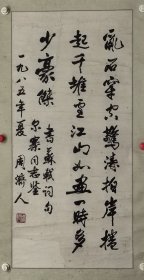 乱石穿空惊涛拍岸捲
起千堆雪江山如画一时多
少豪杰 书苏轼词句
尔寨同志鉴
一九八五年夏 周济人